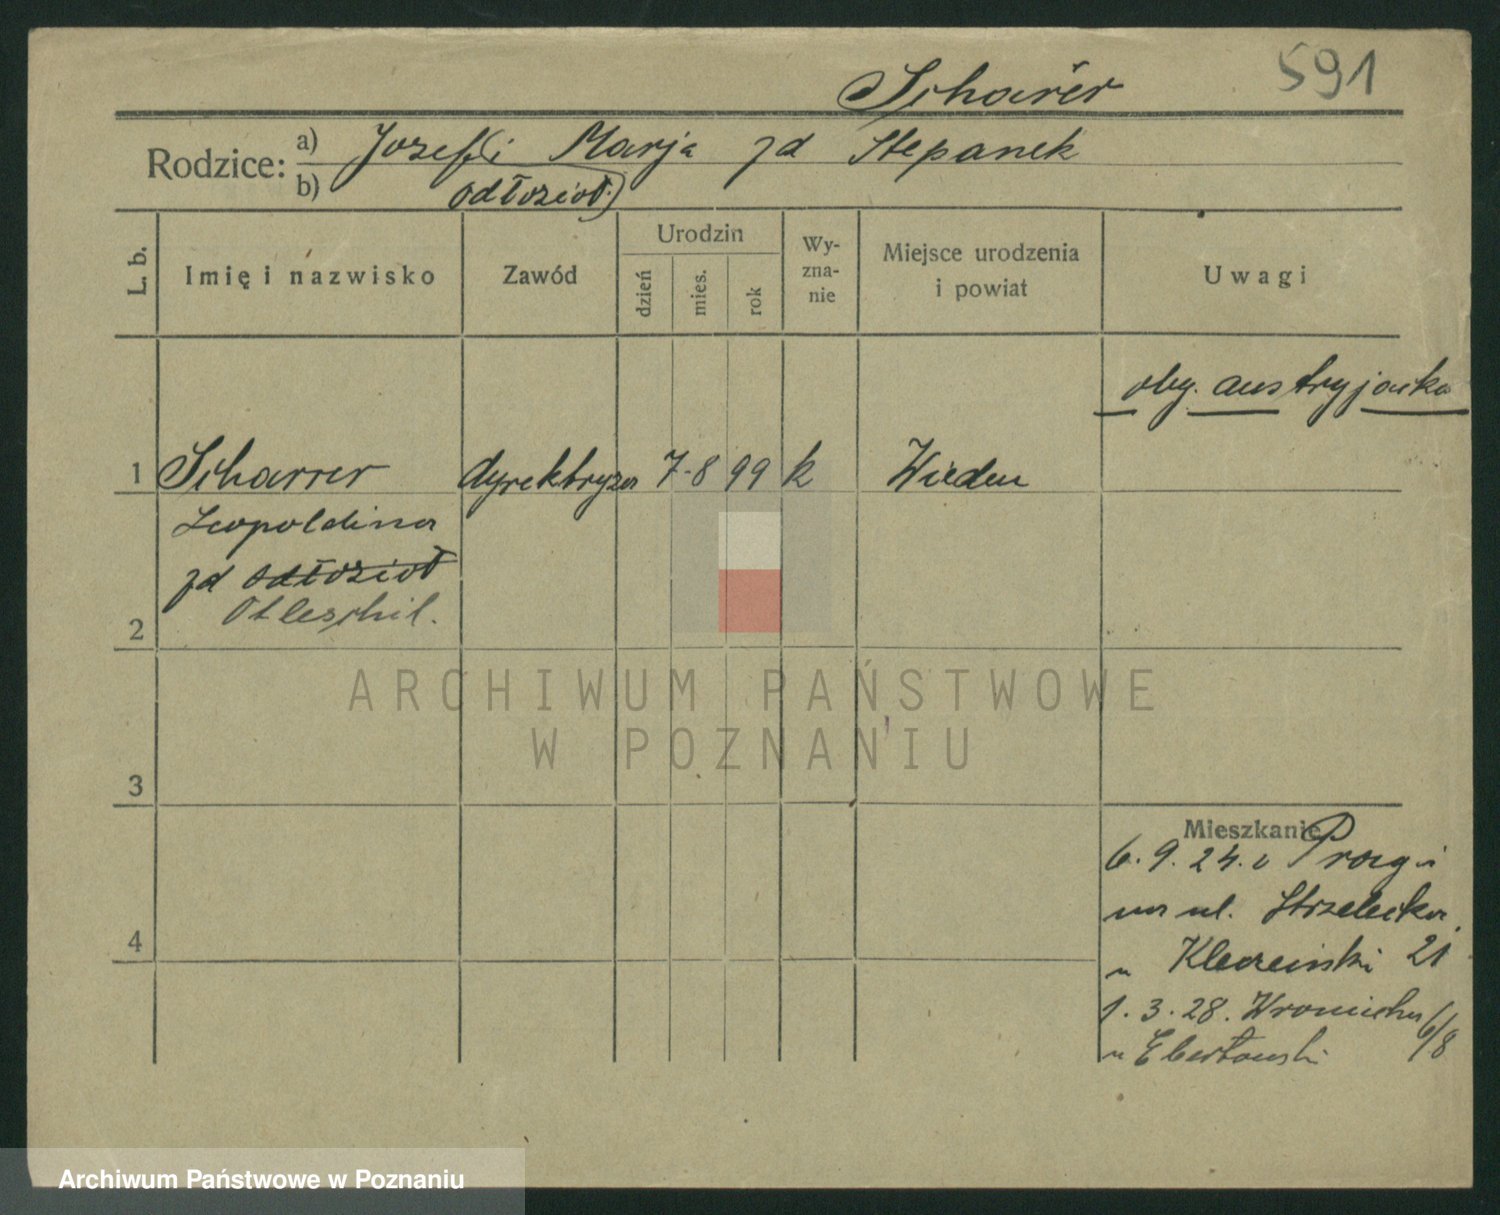 591
Scharer
Rodzice: a) Jozef i Marja zd Stepanek
b) odłozioł
L. b.
Imię i nazwisko
Zawód
Urodzin
dzień
mies.
rok
Wy-
zna-
nie
Miejsce urodzenia
i powiat
Uwagi
oby. austryjacka
1 Scharrer dyrektryza 7-8 99 k Wieden
Leopoldina
zd odłozioł
2
ARCHIWUM PAŃSTWOWE
W POZNANIU
3
Mieszkanie
6. 9. 24. z Pragi
na ul. Strzelecka
4
u 21
1. 3. 28. Wroniecka 6/8
u
Archiwum Państwowe w Poznaniu